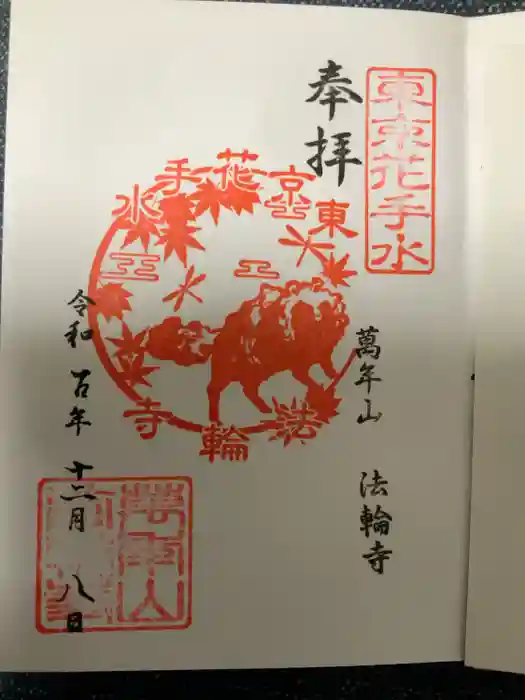 東京花手水
奉拝
東京花手水
法輪寺
萬年山 法輪寺
令和五年 十二月 八日
萬年山